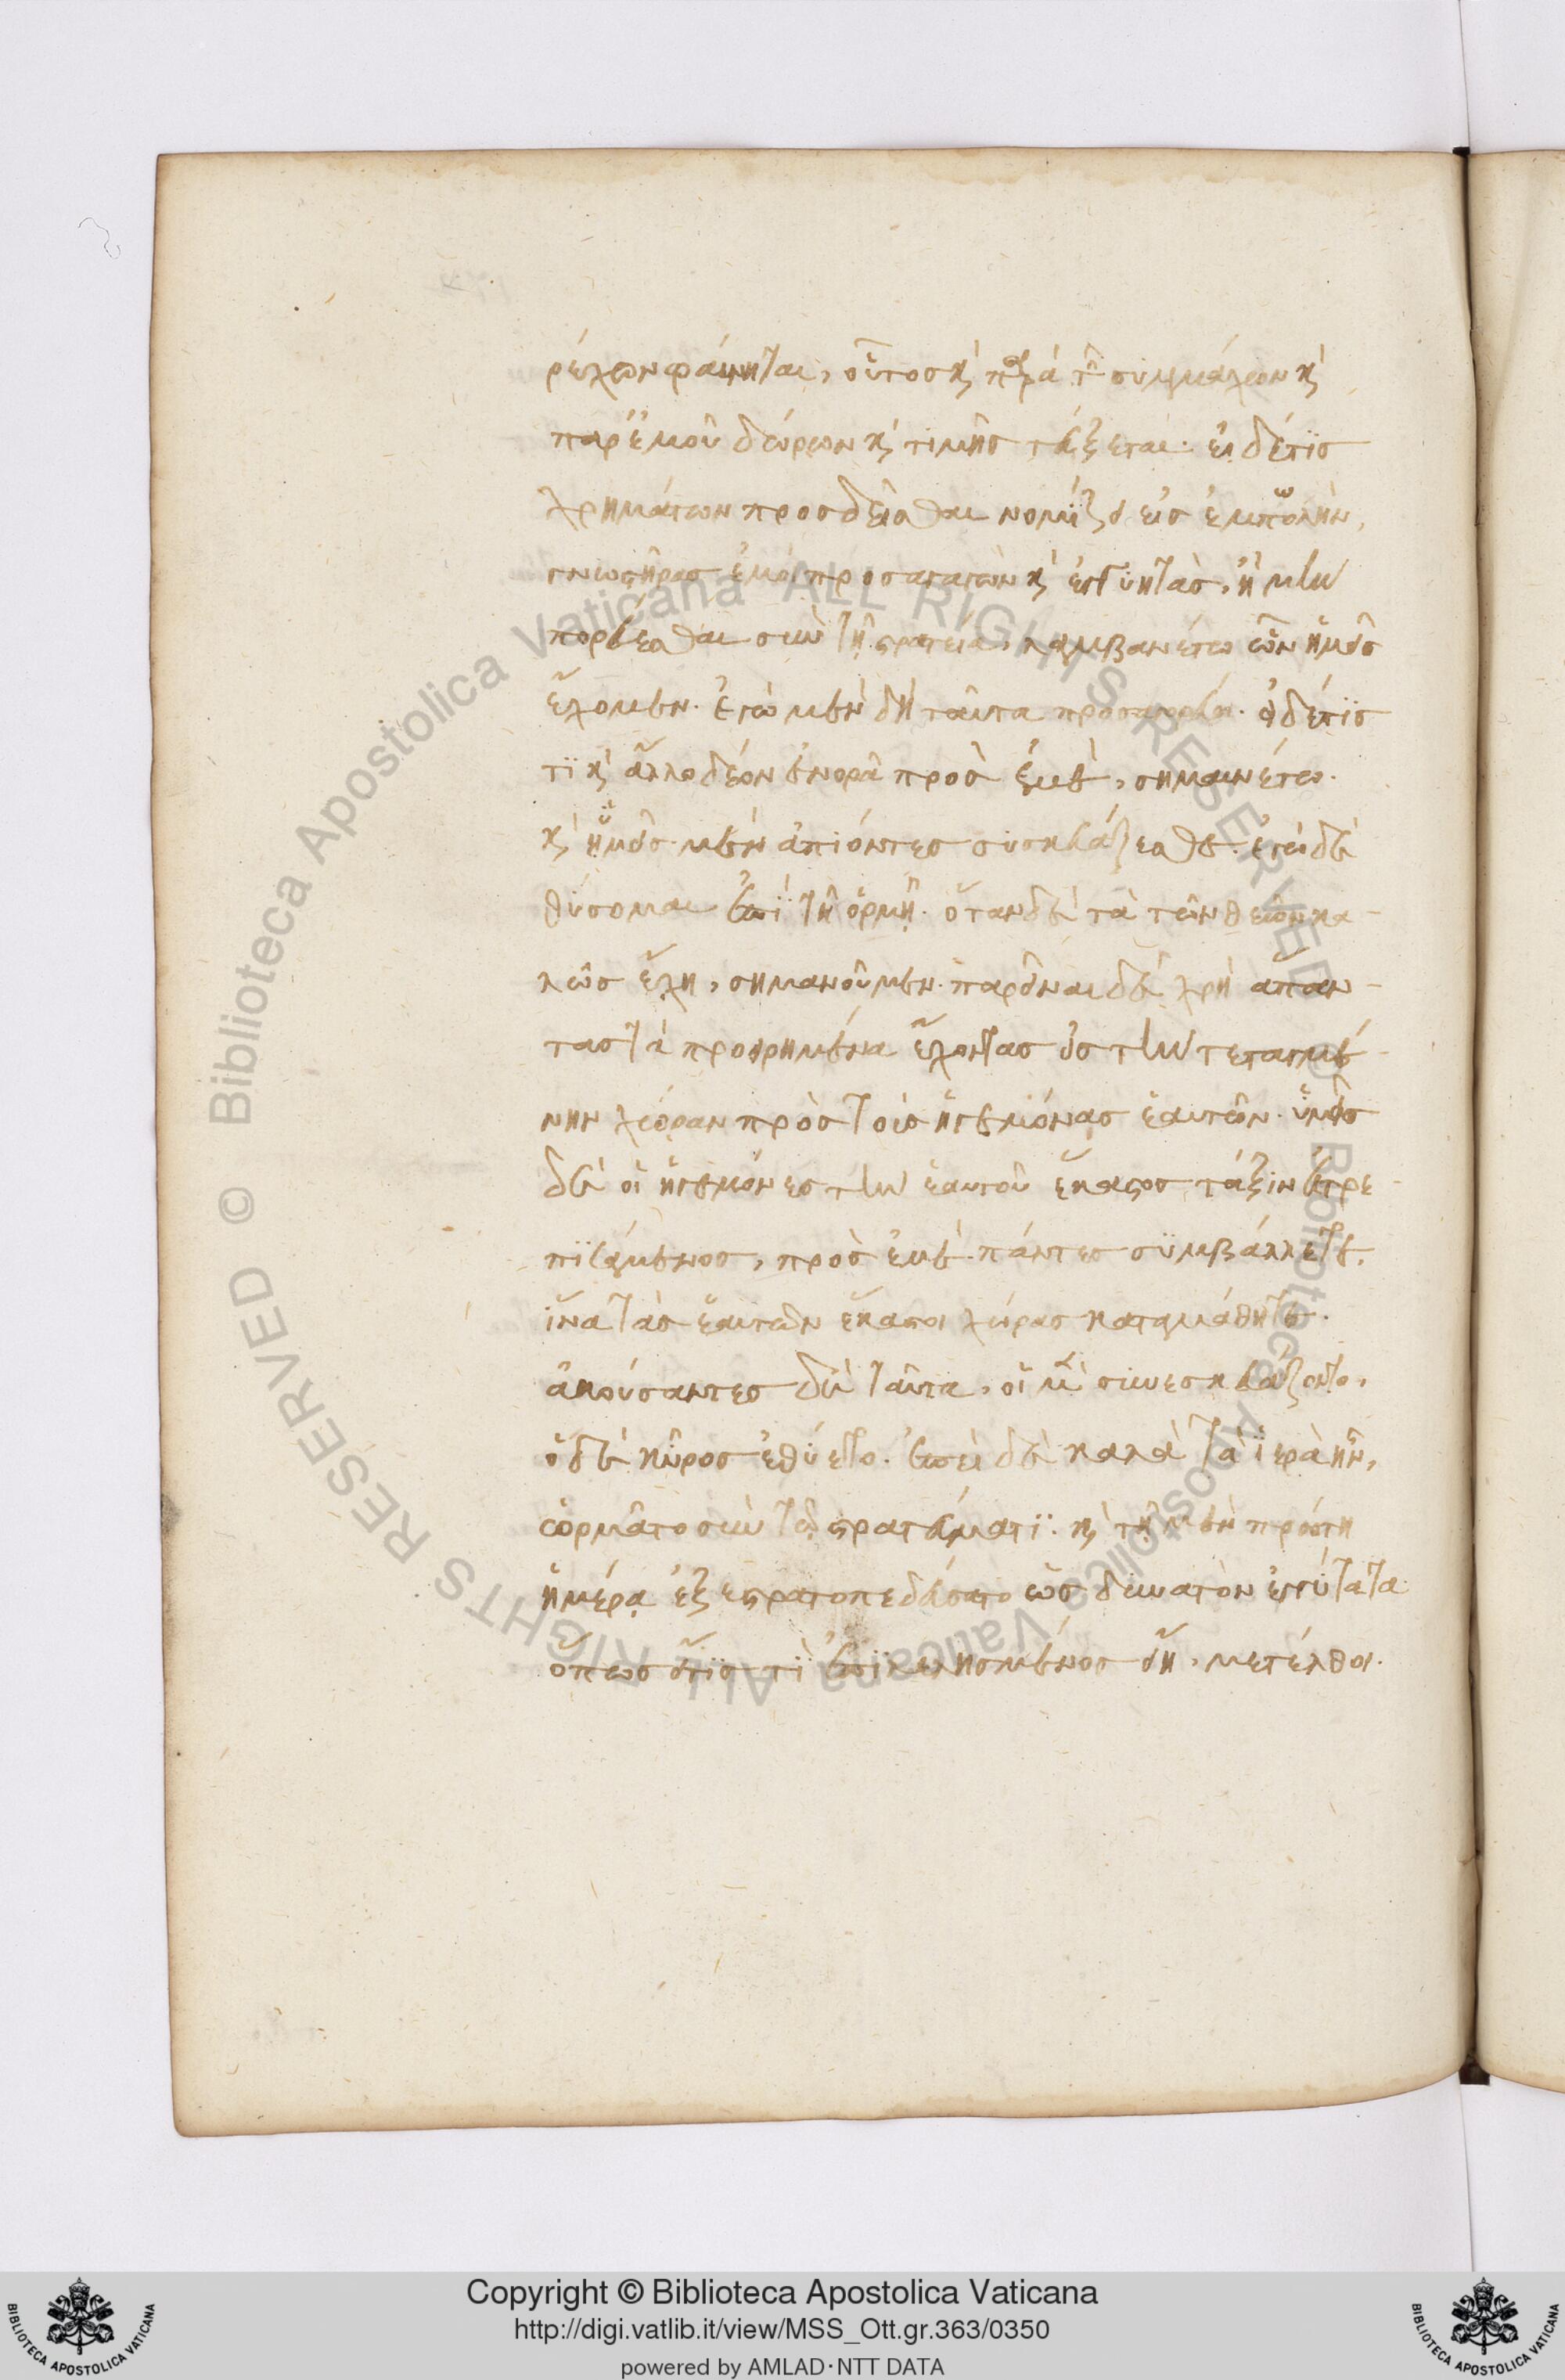 ρέχων φαίνηται, οὗτος κ' παρὰ τῶν συμμάχων κ'
παρ' ἐμοῦ δώρων κ' τιμῆς τεύξεται. εἰ δέ τις
χρημάτων προσδεῖσθαι νομίζει εἰς ἐμπολὴν,
γνωστῆρας ἐμοὶ προσαγαγὼν κ' ἐγγυητὰς, ἢ μὴν
πορεύεσθαι σὺν τῇ στρατείᾳ, λαμβανέτω ὧν ἡμεῖς
ἔχομεν. ἐγὼ μὲν δὴ ταῦτα προαγορεύω. εἰ δέ τις
τι κ' ἄλλο δέον ἐνορᾷ πρὸς ἐμὲ, σημαινέτω.
κ' ὑμεῖς μὲν ἀπιόντες συσκευάζεσθε. ἐγὼ δὲ
θύσομαι ἐπὶ τῇ ὁρμῇ. ὅταν δὲ τὰ τῶν θεῶν κα-
λῶς ἔχῃ, σημανοῦμεν. παρεῖναι δὲ χρὴ ἅπαν-
τας τὰ προειρημένα ἔχοντας εἰς τὴν τεταγμέ-
νην χώραν πρὸς τοὺς ἡγεμόνας ἑαυτῶν. ὑμεῖς
δὲ οἱ ἡγεμόνες τὴν ἑαυτοῦ ἕκαστος τάξιν εὐτρε-
πισάμενος, πρὸς ἐμὲ πάντες συμβάλλετε.
ἵνα τὰς ἑαυτῶν ἕκαστοι χώρας καταμάθητε.
ἀκούσαντες δὲ ταῦτα, οἱ μὲν συνεσκευάζοντο,
ὁ δὲ κῦρος ἐθύετο. ἐπεὶ δὲ καλὰ τὰ ἱερὰ ἦν,
ὡρμᾶτο σὺν τῷ στρατεύματι. κ' τῇ μὲν πρώτῃ
ἡμέρᾳ ἐξεστρατοπεδεύσατο ὡς δυνατὸν ἐγγύτατα
ὅπως εἴ τίς τι ἐπιλελησμένος εἴη, μετέλθοι.
Copyright © Biblioteca Apostolica Vaticana
http://digi.vatlib.it/view/MSS_Ott.gr.363/0350
powered by AMLAD·NTT DATA
BIBLIOTECA APOSTOLICA VATICANA
BIBLIOTECA APOSTOLICA VATICANA
© Biblioteca Apostolica Vaticana ALL RIGHTS RESERVED
© Biblioteca Apostolica Vaticana ALL RIGHTS RESERVED